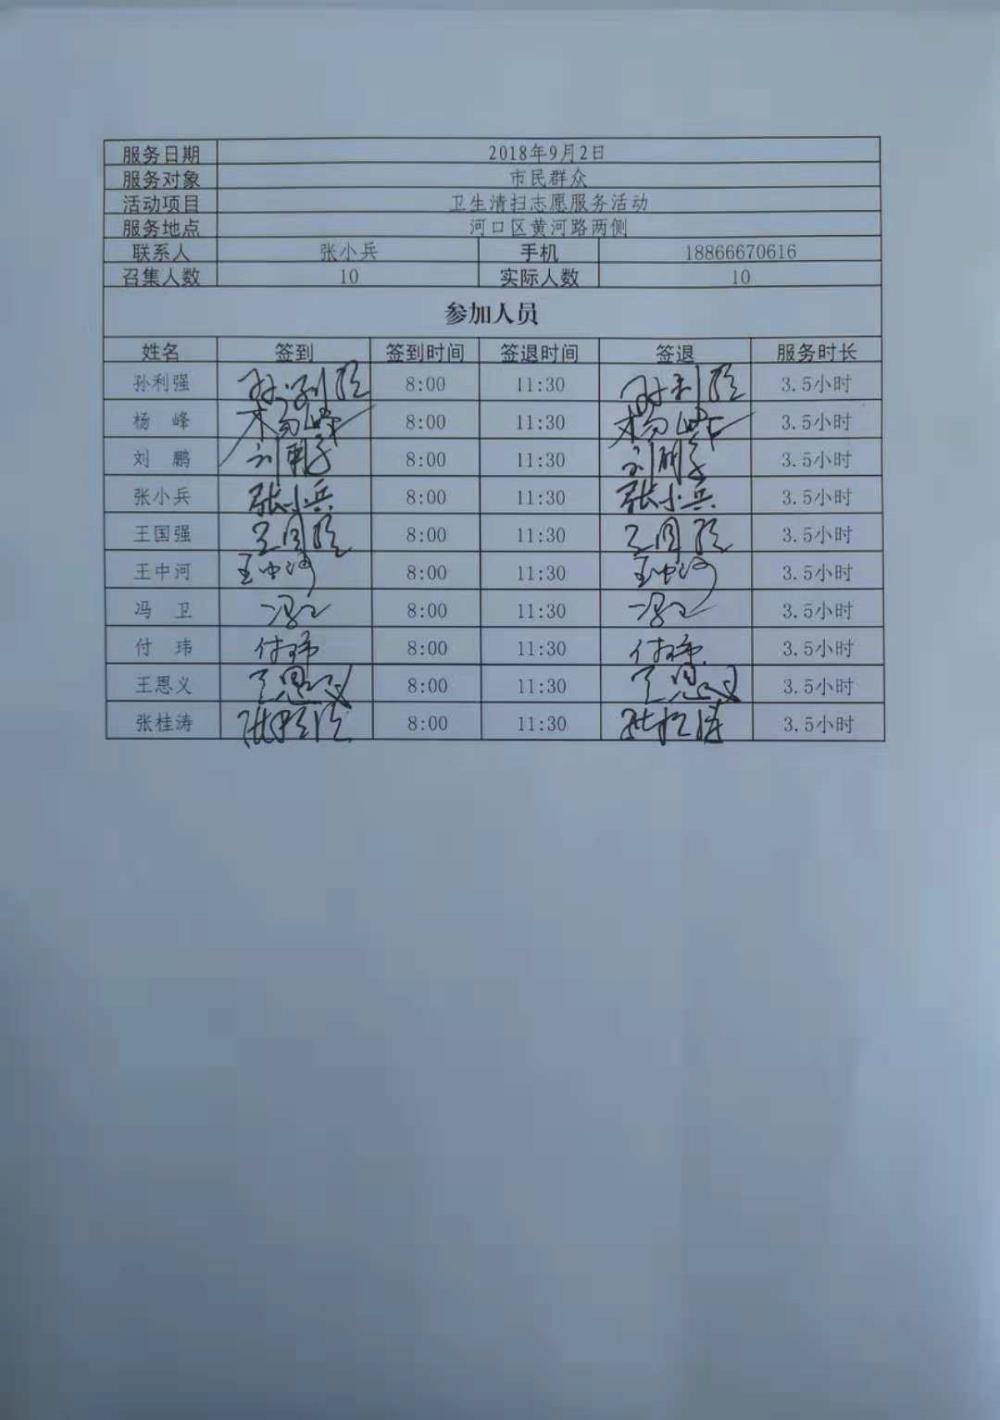 服务日期 2018年9月2日
服务对象 市民群众
活动项目 卫生清扫志愿服务活动
服务地点 河口区黄河路两侧
联系人 张小兵 手机 18866670616
召集人数 10 实际人数 10
参加人员
姓名 签到 签到时间 签退时间 签退 服务时长
孙利强 孙利强 8:00 11:30 孙利强 3.5小时
杨 峰 杨峰 8:00 11:30 杨峰 3.5小时
刘 鹏 刘鹏 8:00 11:30 刘鹏 3.5小时
张小兵 张小兵 8:00 11:30 张小兵 3.5小时
王国强 王国强 8:00 11:30 王国强 3.5小时
王中河 王中河 8:00 11:30 王中河 3.5小时
冯 卫 冯卫 8:00 11:30 冯卫 3.5小时
付 玮 付玮 8:00 11:30 付玮 3.5小时
王恩义 王恩义 8:00 11:30 王恩义 3.5小时
张桂涛 张桂涛 8:00 11:30 张桂涛 3.5小时